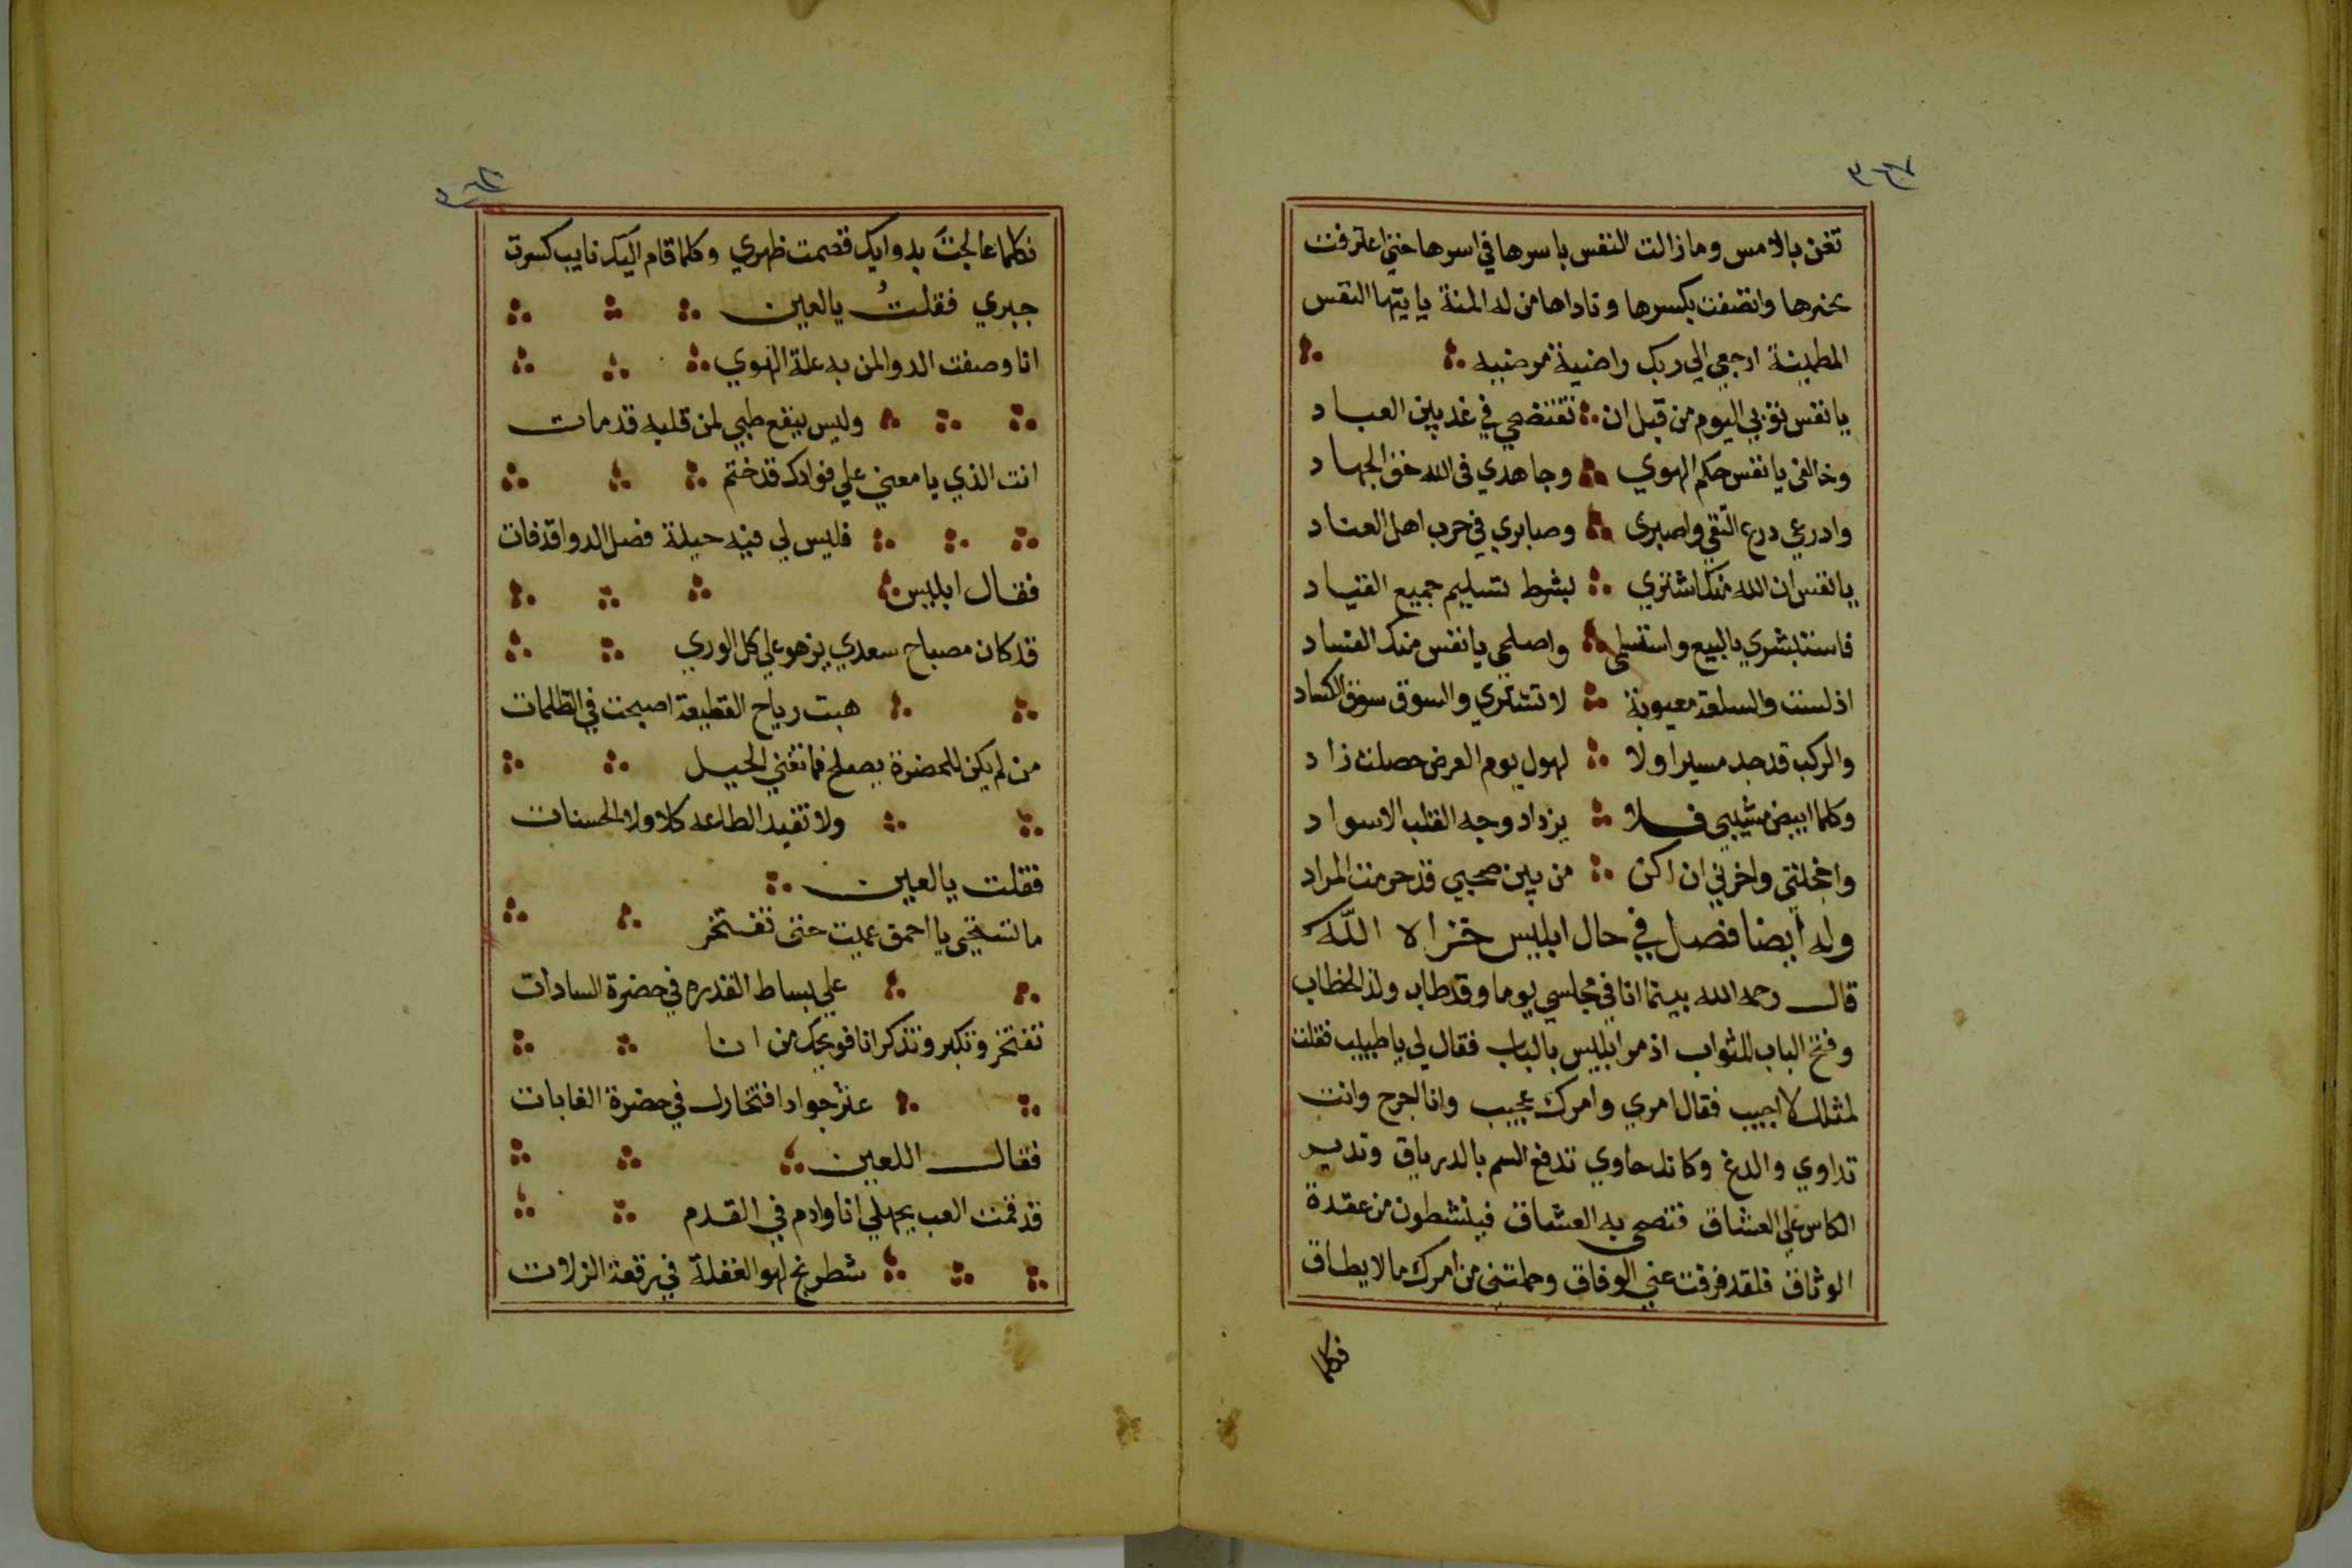 تغن بالامس وما زالت النفس باسرها في اسرها حتي اعترفت
وانتصفت بكسرها وناداها من له المنة يايتها النفس
المطمينة ارجعي الي ربك راضية مرضيه
يا نفس توبي اليوم من قبل ان تفتضحي في غد بين العباد
وخالفي يا نفس حكم الهوي وجاهدي في الله حق الجهاد
وادرعي درع التقي واصبري وصابري في حرب اهل العناد
يا نفس ان الله منك اشتري بشرط تسليم جميع القياد
فاستبشري بالبيع واصلحي يا نفس منك الفساد
اذ لست والسلعة معيوبة لا تشتري والسوق سوق الكساد
والركب قد جد مسيرا ولا لهول يوم العرض حصلت زاد
وكلما ابيض مشيبي فلا يزداد وجه القلب الاسواد
واخجلتي واحزني ان اكن من بين صحبي قد حرمت المراد
وله أيضا فصل في حال ابليس خزاه اللّه
قال رحمه الله بينما انا في مجلسي يوما وقد طاب ولذ الخطاب
وفتح الباب للثواب اذ مر ابليس بالباب فقال لي يا طبيب فقلت
لمثلك لا اجيب فقال امري وامرك عجيب وانا الجرح وانت
تداوي والدغ وكانك حاوي تدفع السم بالدرياق وتدير
الكاس علي العشاق فتصحي به العشاق فينشطون من عقدة
الوثاق فلقد فرقت عني الوفاق وحملتني من امرك ما لا يطاق
فكلما
فكلما عالجتَ بدوايك قصمت ظهري وكلما قام اليك تايب كسرت
جبري فقلتُ يالعين
انا وصفت الدوا لمن به علة الهوي
وليس ينفع طبي لمن قلبه قد مات
انت الذي يا معني علي فوادك قد ختم
فليس لي فيه حيلة فصل الدوا قد فات
فقال ابليس
قد كان مصباح سعدي يزهو علي كل الوري
هبت رياح القطيعة اصبحت في الظلمات
من لم يكن للحضرة يصلح فما تغني الحيل
ولا تفيد الطاعه كلا ولا الحسنات
فقلت يالعين
ما تستحي يا احمق عميت حتى تفتخر
علي بساط القدره في حضرة السادات
تفتخر وتكبر وتذكر انا فويحك من انا
عثر جواد افتخارك في حضرة الغابات
فقال اللعين
قد قمت العب بجهلي انا وادم في القدم
شطرنج لهو الغفلة في رقعة الزلات